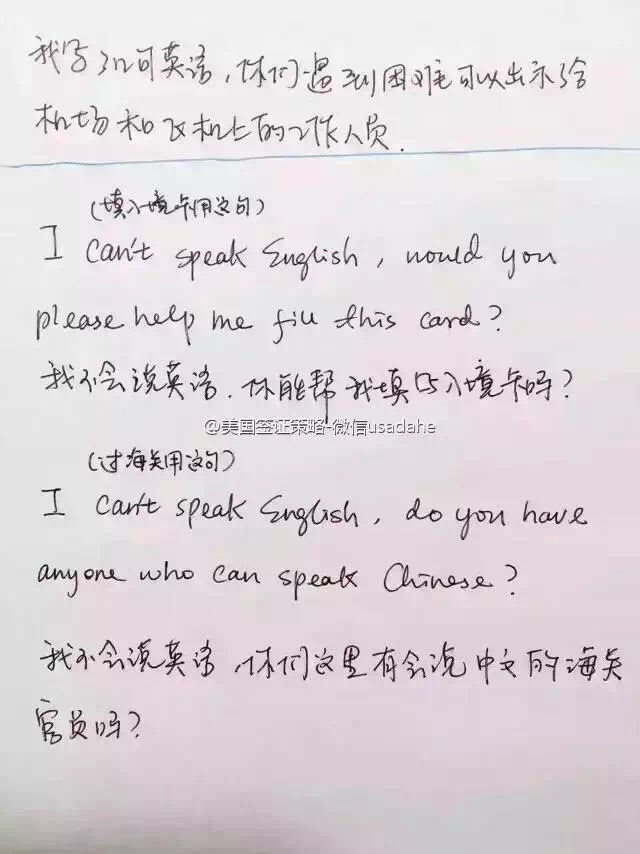 我写了几句英语，你们遇到困难可以出示给
机场和飞机上的工作人员.
(填入境卡用这句)
I can't speak English, would you
please help me fill this card?
我不会说英语.你能帮我填写入境卡吗?
@美国签证策略-微信usadahe
(过海关用这句)
I can't speak English, do you have
anyone who can speak Chinese?
我不会说英语,你们这里有会说中文的海关
官员吗?